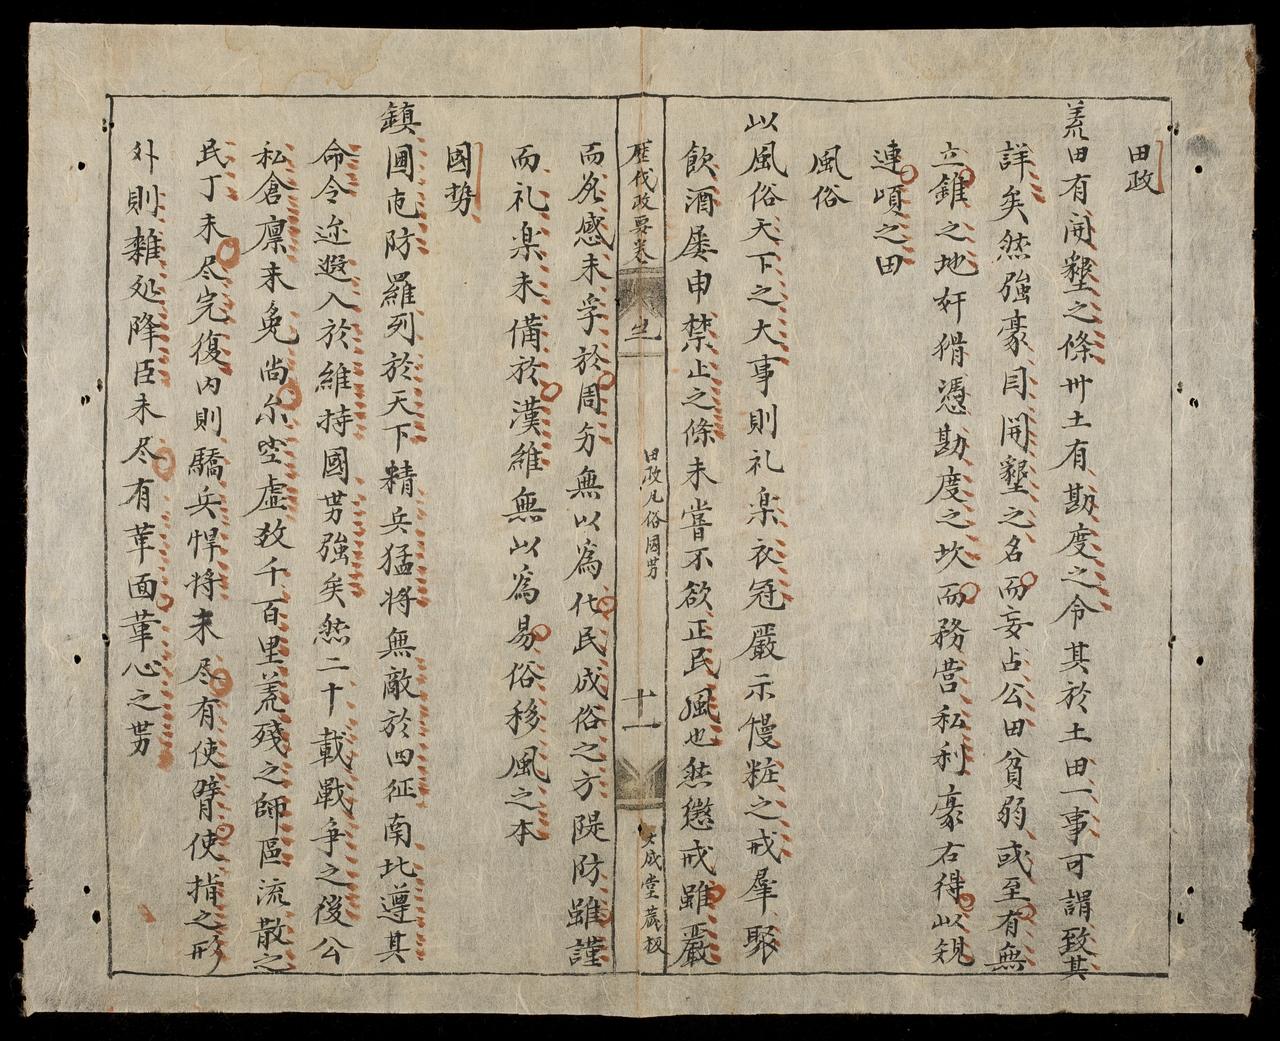 田政
荒田有開墾之條卅土有勘度之令其於土田一事可謂致其
詳矣然強豪因開墾之名而妄占公田貧弱或至有無
立錐之地奸猾憑勘度之坎而務营私利豪右得以規
連頃之田
風俗
以風俗天下之大事則礼楽衣冠嚴示慢粧之戒羣聚
飲酒屡申禁止之條未嘗不欲正民風也然懲戒雖嚴
歷伐政要卷之
田政凡俗国势
十一
大成堂藏板
而感未孚於周旁無以為化民成俗之方隄防雖謹
而礼楽未備於漢維無以為易俗移風之本
國势
鎮圃屯防羅列於天下精兵猛将無敵於四征南北遵其
命令迩遐入於維持國势強矣然二十載戰争之後公
私倉廪未免尚尔空虚数千百里荒殘之師區流散之
民丁未尽完復内則驕兵悍将未尽有使臂使指之形
外則雜処降臣未尽有革面革心之势